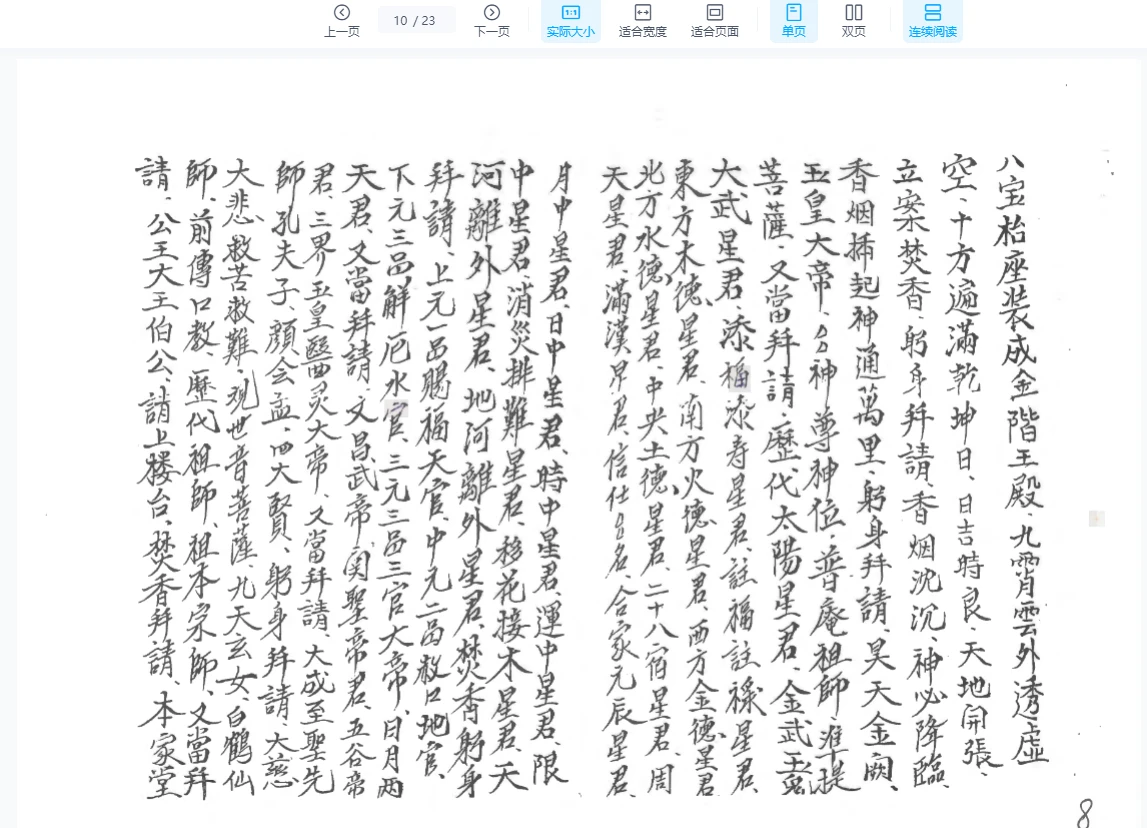 上一页
10 / 23
下一页
实际大小
适合宽度
适合页面
单页
双页
连续阅读
八宝枱座装成金階王殿、九霄雲外透虛
空、十方遍滿乾坤日、日吉時良、天地開張、
立案焚香、躬身拜請、香烟沈沉、神必降臨、
香烟插起神通萬里、躬身拜請、昊天金闕、
玉皇大帝、呂神尊神位、普庵祖師、準提
菩薩、又當拜請、歷代太陽星君、金武玉
大武星君、添福添寿星君、註福註祿星君、
東方木德星君、南方火德星君、西方金德星君
北方水德星君、中央土德星君、二十八宿星君、周
天星君、滿漢星君、信仕名、合家元辰星君、
月中星君、日中星君、時中星君、運中星君、限
中星君、消災排難星君、移花接木星君、天
河離外星君、地河離外星君、焚香躬身
拜請、上元一品賜福天官、中元二品赦口地官、
下元三品解厄水官、三元三品三官大帝、日月两
天君、又當拜請、文昌武帝、関聖帝君、五谷帝
君、三界五皇醫灵大帝、又當拜請、大成至聖先
師孔夫子、顔会孟、四大賢、躬身拜請、大慈
大悲救苦救難、观世音菩薩、九天玄女、白鶴仙
師、前傳口教、歷代祖師、祖本宗師、又當拜
請、公王大王伯公、請上楼台、焚香拜請、本家堂
8